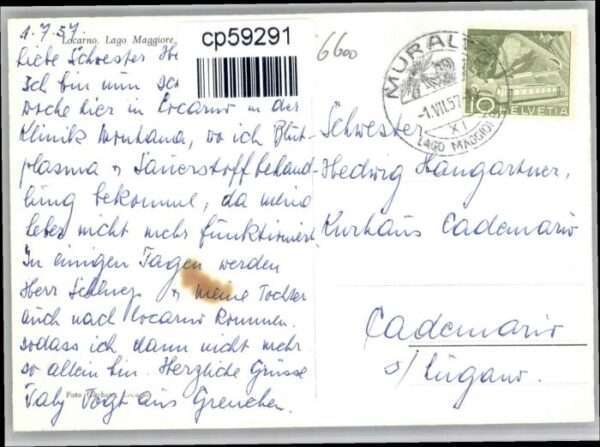 1.7.57.
Locarno. Lago Maggiore.
cp59291
Liebe Schwester He
Ich bin nun
Woche hier in Locarno in der
Klinik Montana, wo ich Blut-
plasma & Sauerstoffbehand-
lung bekomme, da meine
Leber nicht mehr funktioniert.
In einigen Tagen werden
Herr & meine Tochter
auch nach Locarno kommen.
sodass ich dann nicht mehr
so allein bin. Herzliche Grüsse
Vogt aus Grenchen.
Foto
6600
MURAL
-1.VII.57
XI
LAGO MAGGIORE
10 HELVETIA
Schwester
Hedwig Hangartner,
Kurhaus Cademario
Cademario
s/Lugano.